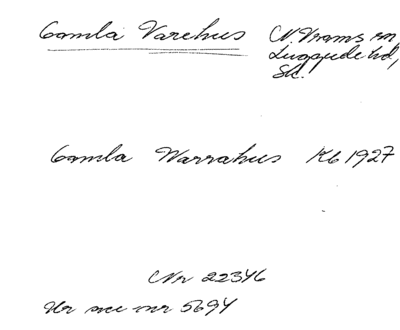 Gamla Varehus N. Vrams sn
Luggude hd,
Sk.
Gamla Warrahus Kb 1927
CNr 22346
Ur acc nr 5694